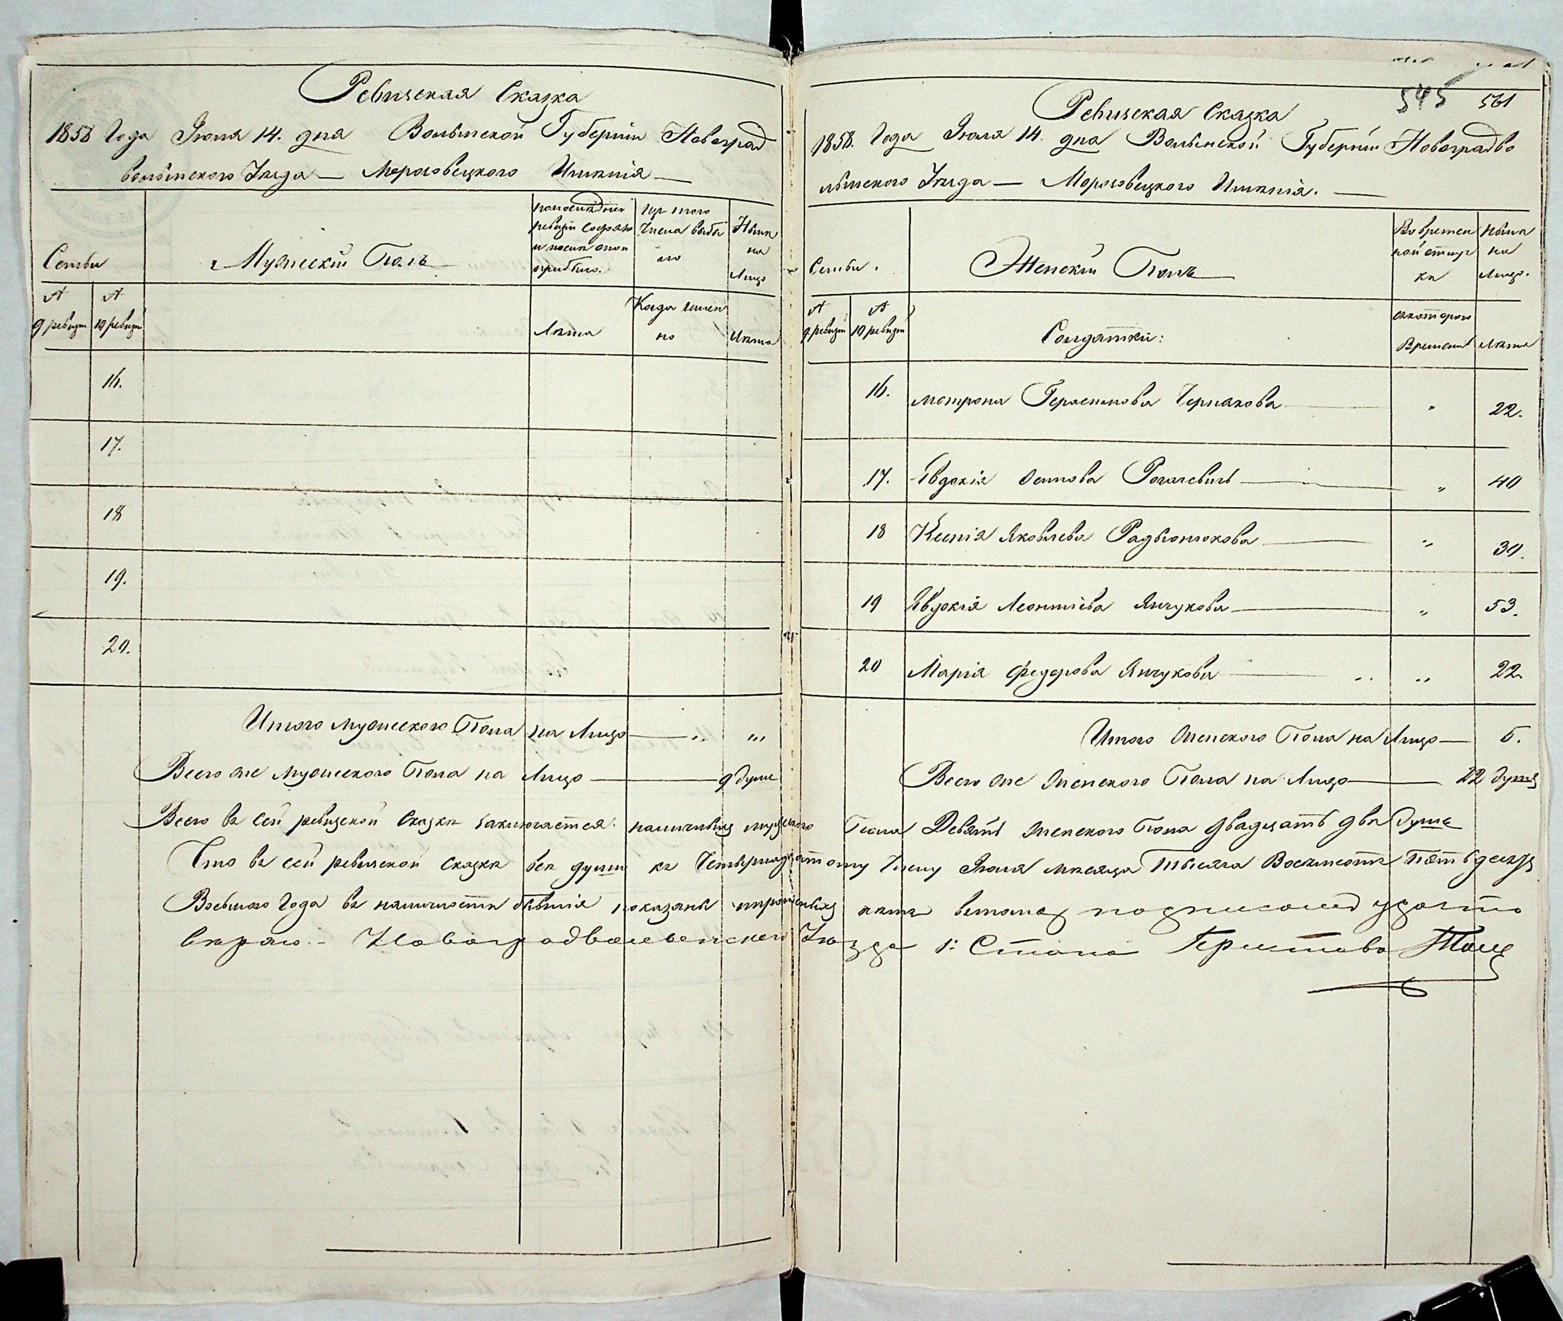 Ревизская Сказка
1858 Года Июля 14. дня Волынской Губернии Новоград
волынского Уезда — Морозовецкого Имения —
Семьи
Мужеский Полъ
по последней ревизии состояло и после оной прибыло.
Изъ того числа выбыло
Ныне на лицо
№ 9 ревизии
№ 10 ревизии
Лета
Когда именно
Лета
16.
17.
18
19.
20.
Итого мужеского Пола на Лицо — „ „
Всего же мужеского Пола на Лицо — 9 душ
545 561
Ревизская Сказка
1858. Года Июля 14. дня Волынской Губернии Новоградво
лынского Уезда — Морозовецкого Имения. —
Семьи.
Женский Полъ
Во временной отлучке
Ныне на лицо.
№ 9 ревизии
№ 10 ревизии
Солдатки:
съ котораго времени
Лета
16. Мотрона Герасимова Чернякова — „ 22.
17. Евдокія Осипова Рогалевичъ — „ 40
18 Ксенія Яковлева Радьонюкова — „ 30.
19 Евдокія Леонтіева Янчукова — „ 53.
20 Марія Федорова Янчукова — „ 22
Итого Женского Пола на Лицо — 5.
Всего же женского Пола на Лицо — 22 душ
Всего въ сей ревизской сказке заключается: наличныхъ мужеского Пола Девять женского Пола двадцать два душ
Что въ сей ревизской сказке все души къ Четырнадцатому числу Июля месяца Тысяча Восемьсотъ Пятьдесят
Восьмого Года въ наличности бывшія показаны въ томъ подписомъ удосто
веряю. — Новоградволынского Уезда 1: Стана Приставъ